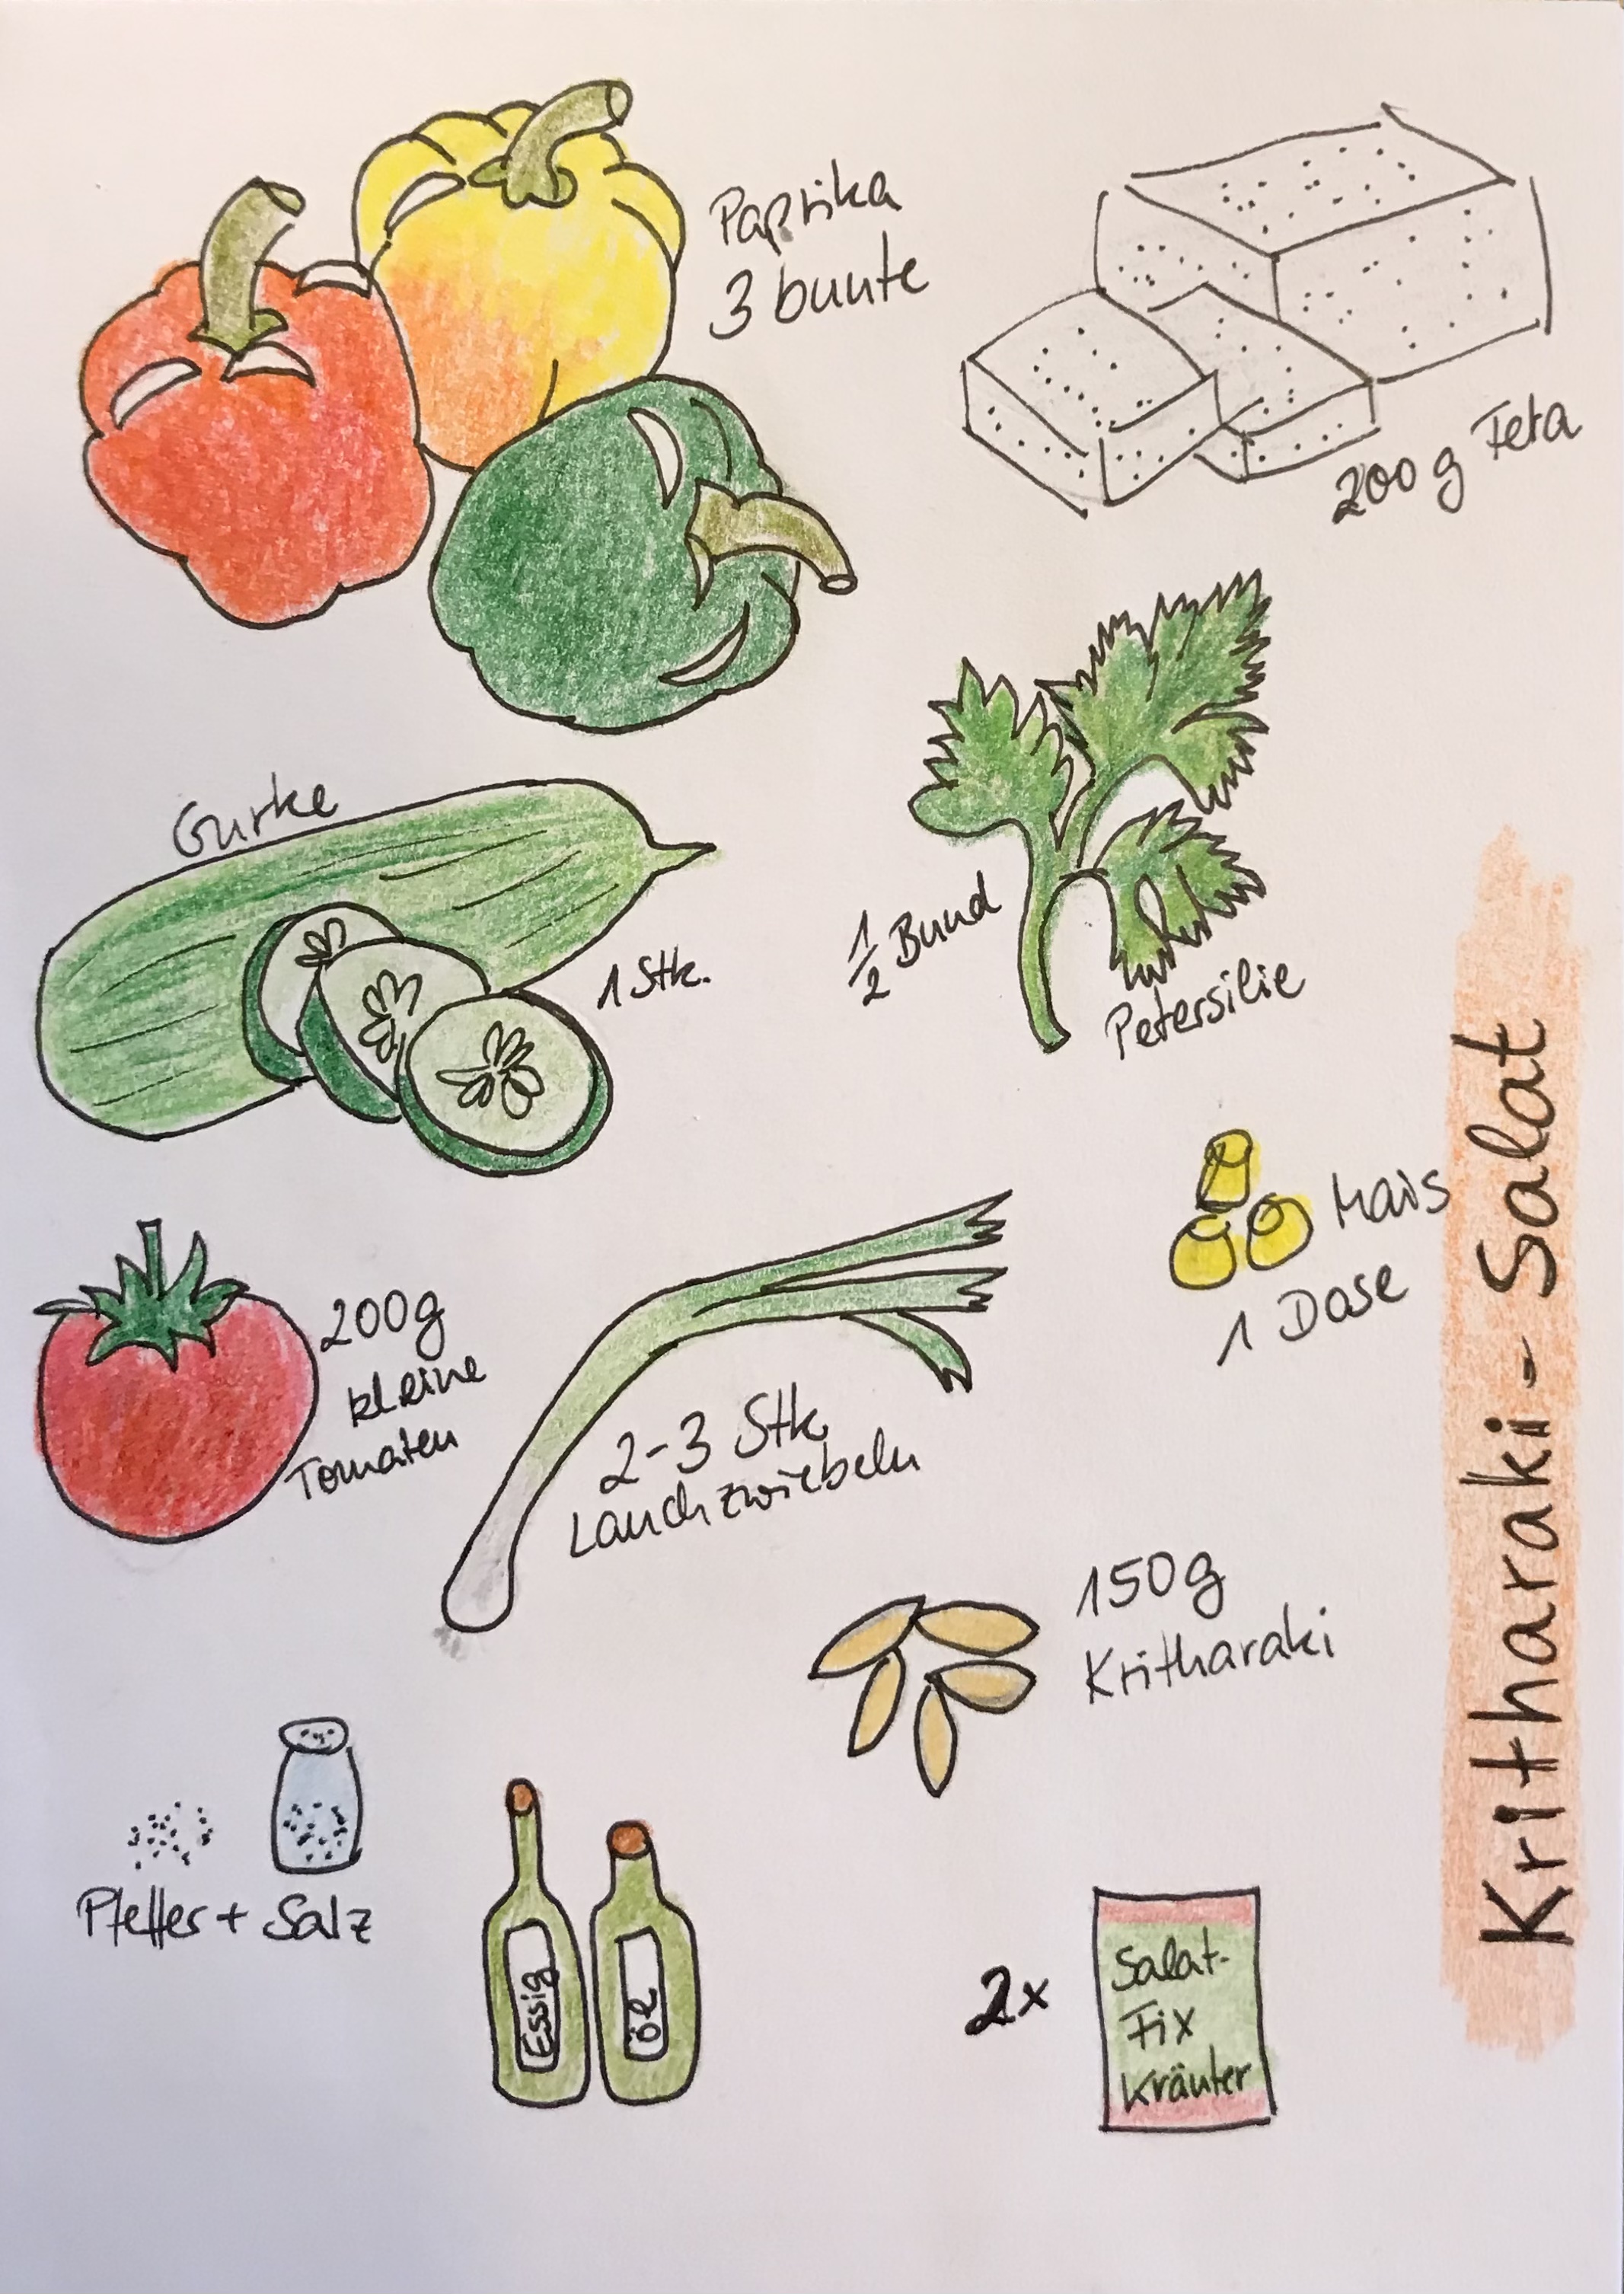 Paprika
3 bunte
200g Feta
Gurke
1 Stk.
1/2 Bund
Petersilie
Mais
1 Dose
200g
kleine
Tomaten
2-3 Stk
Lauchzwiebeln
150g
Kritharaki
Pfeffer + Salz
Essig
Öl
2x
Salat-
Fix
Kräuter
Kritharaki-Salat